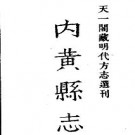 天一閣藏明代方志選刊
内黄縣志